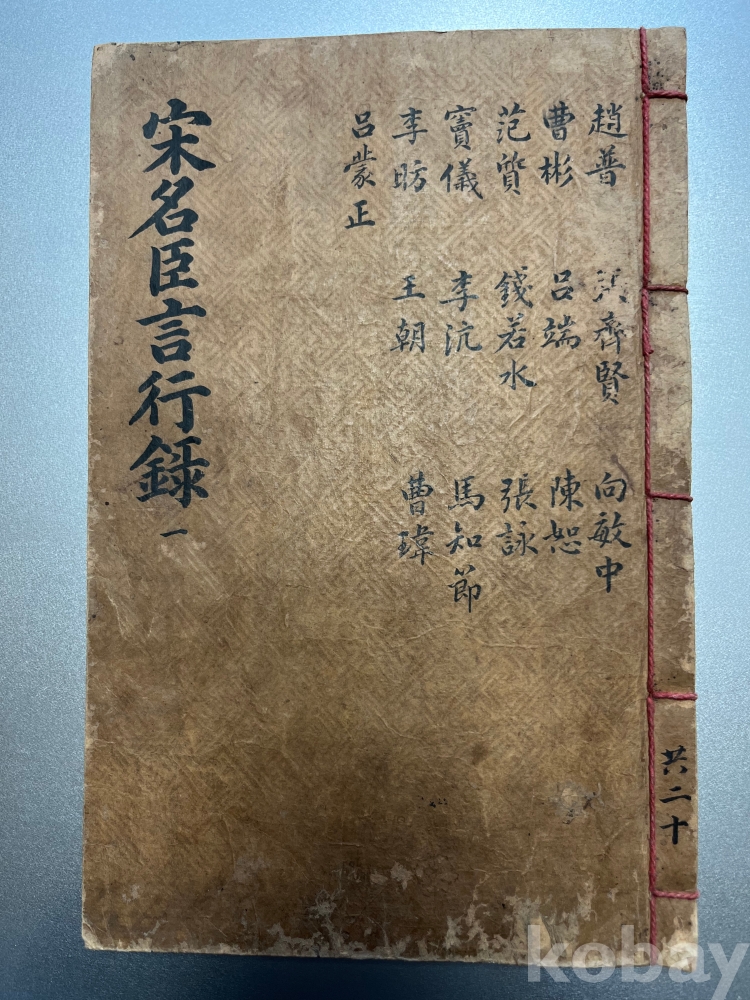 宋名臣言行錄 一
趙普
曹彬
范質
竇儀
李昉
呂蒙正
齊賢
呂端
錢若水
李沆
王朝
向敏中
陳恕
張詠
馬知節
曹瑋
共二十
kobay